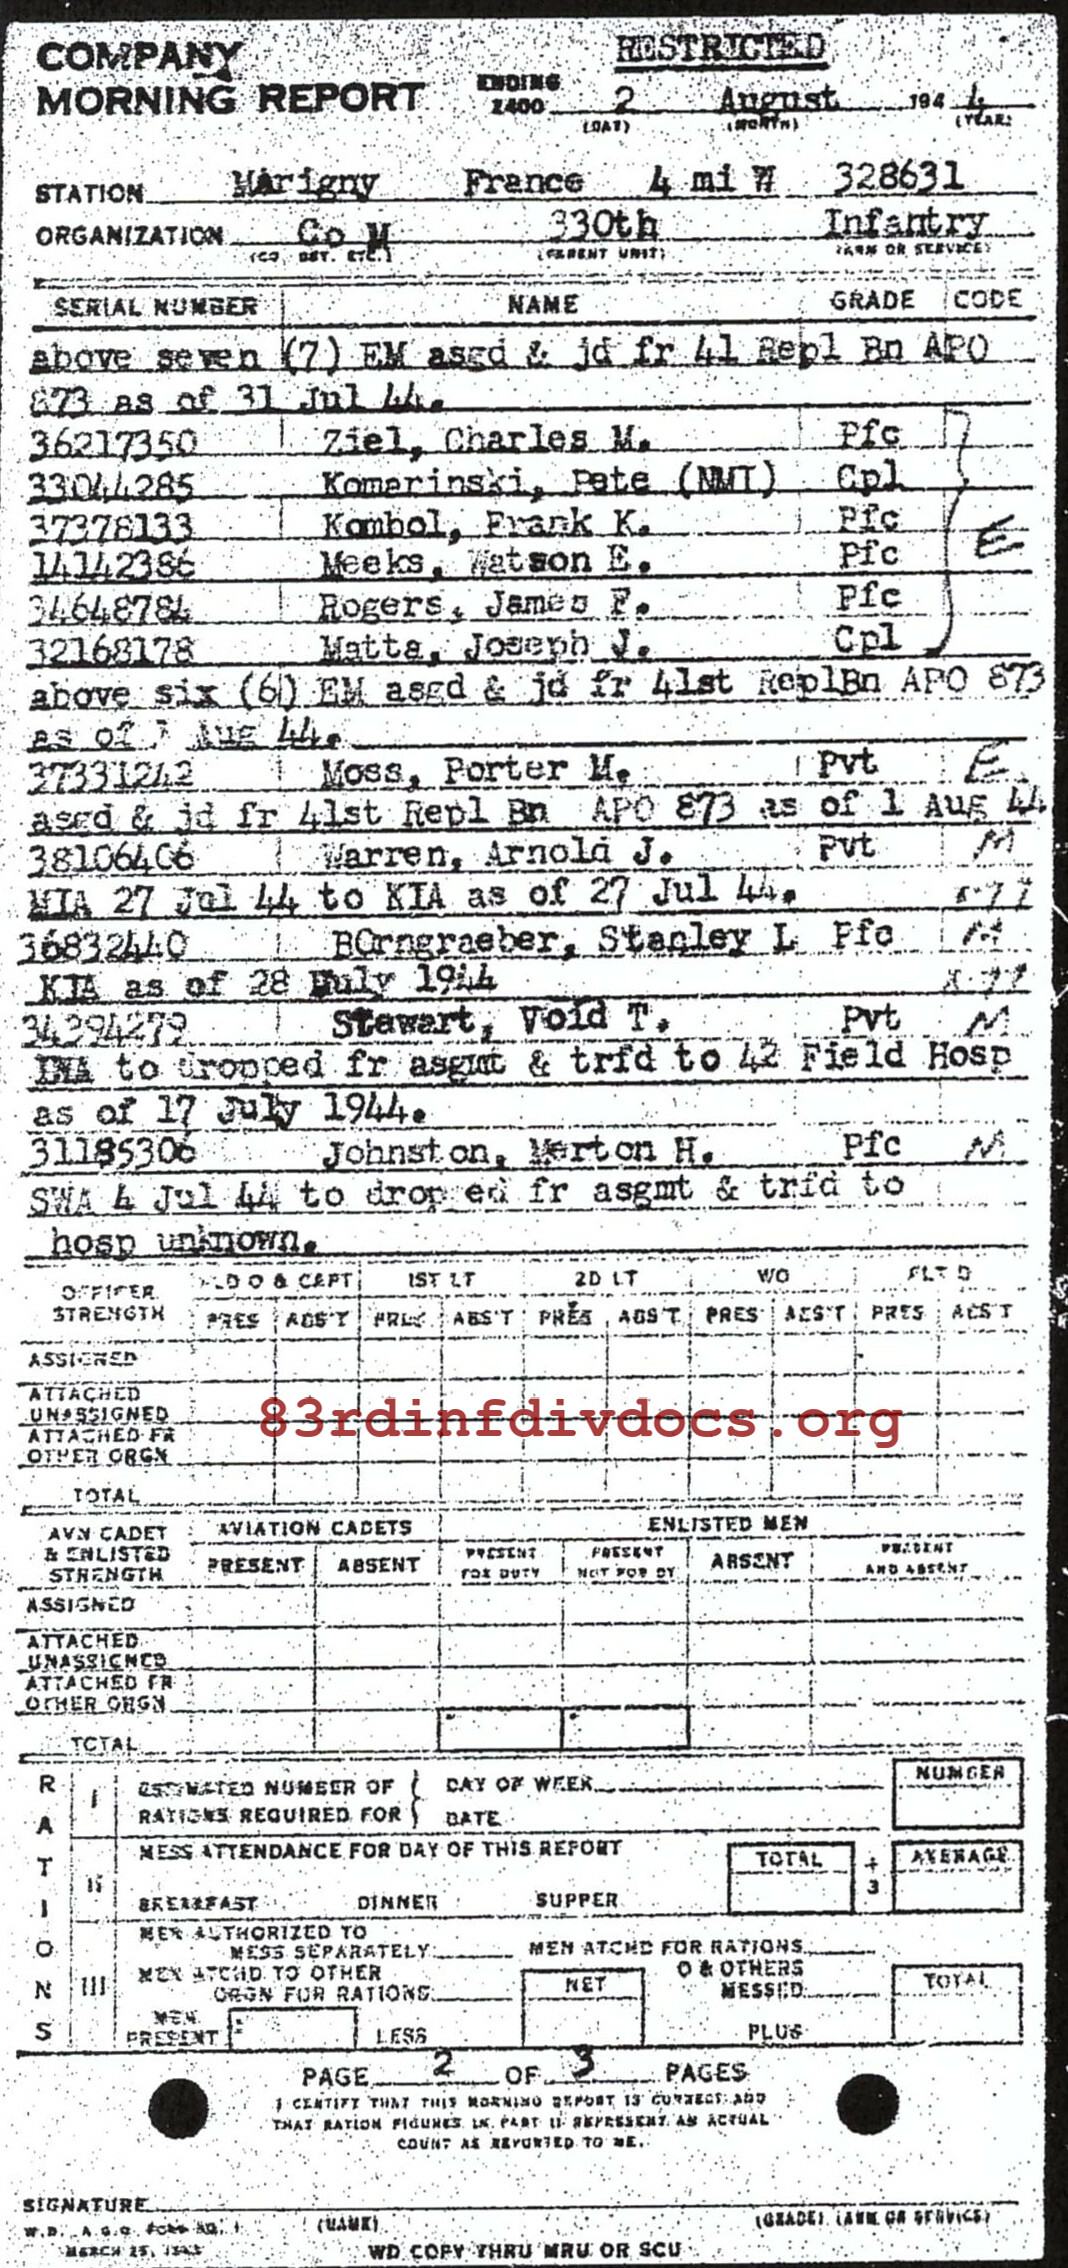 RESTRICTED
COMPANY
MORNING REPORT
ENDING
2400 2 August 194 4
(DAY) (MONTH) (YEAR)
STATION Marigny France 4 mi W 328631
ORGANIZATION Co M 330th Infantry
(CO, DET. ETC.) (PARENT UNIT) (ARM OR SERVICE)
SERIAL NUMBER NAME GRADE CODE
above seven (7) EM asgd & jd fr 41 Repl Bn APO
873 as of 31 Jul 44.
36217350 Ziel, Charles M. Pfc
33044285 Komarinski, Pete (NMI) Cpl
37378133 Kombol, Frank K. Pfc E
14142386 Meeks, Watson E. Pfc
34648784 Rogers, James F. Pfc
32168178 Matta, Joseph J. Cpl
above six (6) EM asgd & jd fr 41st ReplBn APO 873
as of 1 Aug 44.
37331242 Moss, Porter M. Pvt E
asgd & jd fr 41st Repl Bn APO 873 as of 1 Aug 44
38106406 Warren, Arnold J. Pvt M
MIA 27 Jul 44 to KIA as of 27 Jul 44.
36832440 BOrngraeber, Stanley L Pfc M
KIA as of 28 July 1944
34394279 Stewart, Void T. Pvt M
to dropped fr asgmt & trfd to 42 Field Hosp
as of 17 July 1944.
31185306 Johnston, Merton H. Pfc M
SWA 4 Jul 44 to dropped fr asgmt & trfd to
hosp unknown.
OFFICER STRENGTH FLD O & CAPT 1ST LT 2D LT WO FLT O
PRES ABS'T PRES ABS'T PRES ABS'T PRES ABS'T PRES ABS'T
ASSIGNED
ATTACHED
UNASSIGNED
83rdinfdivdocs.org
ATTACHED FR
OTHER ORGN
TOTAL
AVN CADET & ENLISTED STRENGTH AVIATION CADETS ENLISTED MEN
PRESENT ABSENT PRESENT FOR DUTY PRESENT NOT FOR DY ABSENT PRESENT AND ABSENT
ASSIGNED
ATTACHED
UNASSIGNED
ATTACHED FR
OTHER ORGN
TOTAL
RATIONS
I ESTIMATED NUMBER OF DAY OF WEEK NUMBER
RATIONS REQUIRED FOR DATE
II MESS ATTENDANCE FOR DAY OF THIS REPORT TOTAL ÷ 3 AVERAGE
BREAKFAST DINNER SUPPER
III MEN AUTHORIZED TO
MESS SEPARATELY MEN ATCHD FOR RATIONS
MEN ATCHD TO OTHER
ORGN FOR RATIONS NET O & OTHERS MESSED TOTAL
MEN PRESENT LESS PLUS
PAGE 2 OF 3 PAGES
I CERTIFY THAT THIS MORNING REPORT IS CORRECT AND
THAT RATION FIGURES IN PART II REPRESENT AN ACTUAL
COUNT AS REPORTED TO ME.
SIGNATURE
(NAME) (GRADE) (ARM OR SERVICE)
W.D., A.G.O. FORM NO. 1
MARCH 25, 1943
WD COPY THRU MRU OR SCU